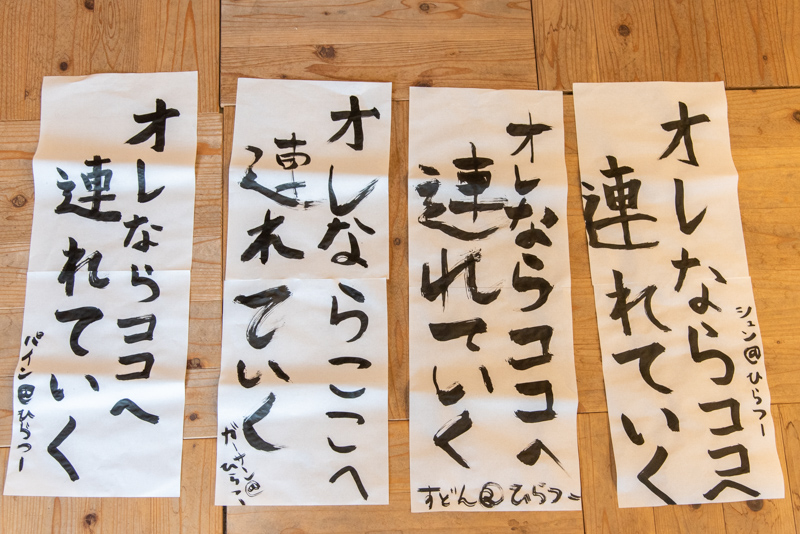 オレならココへ
連れていく
パイン@ひらつー
オレならここへ
連れていく
ガーサン@
ひらつー
オレならココへ
連れていく
すどん@ひらつー
シュン@ひらつー
オレならココへ
連れていく